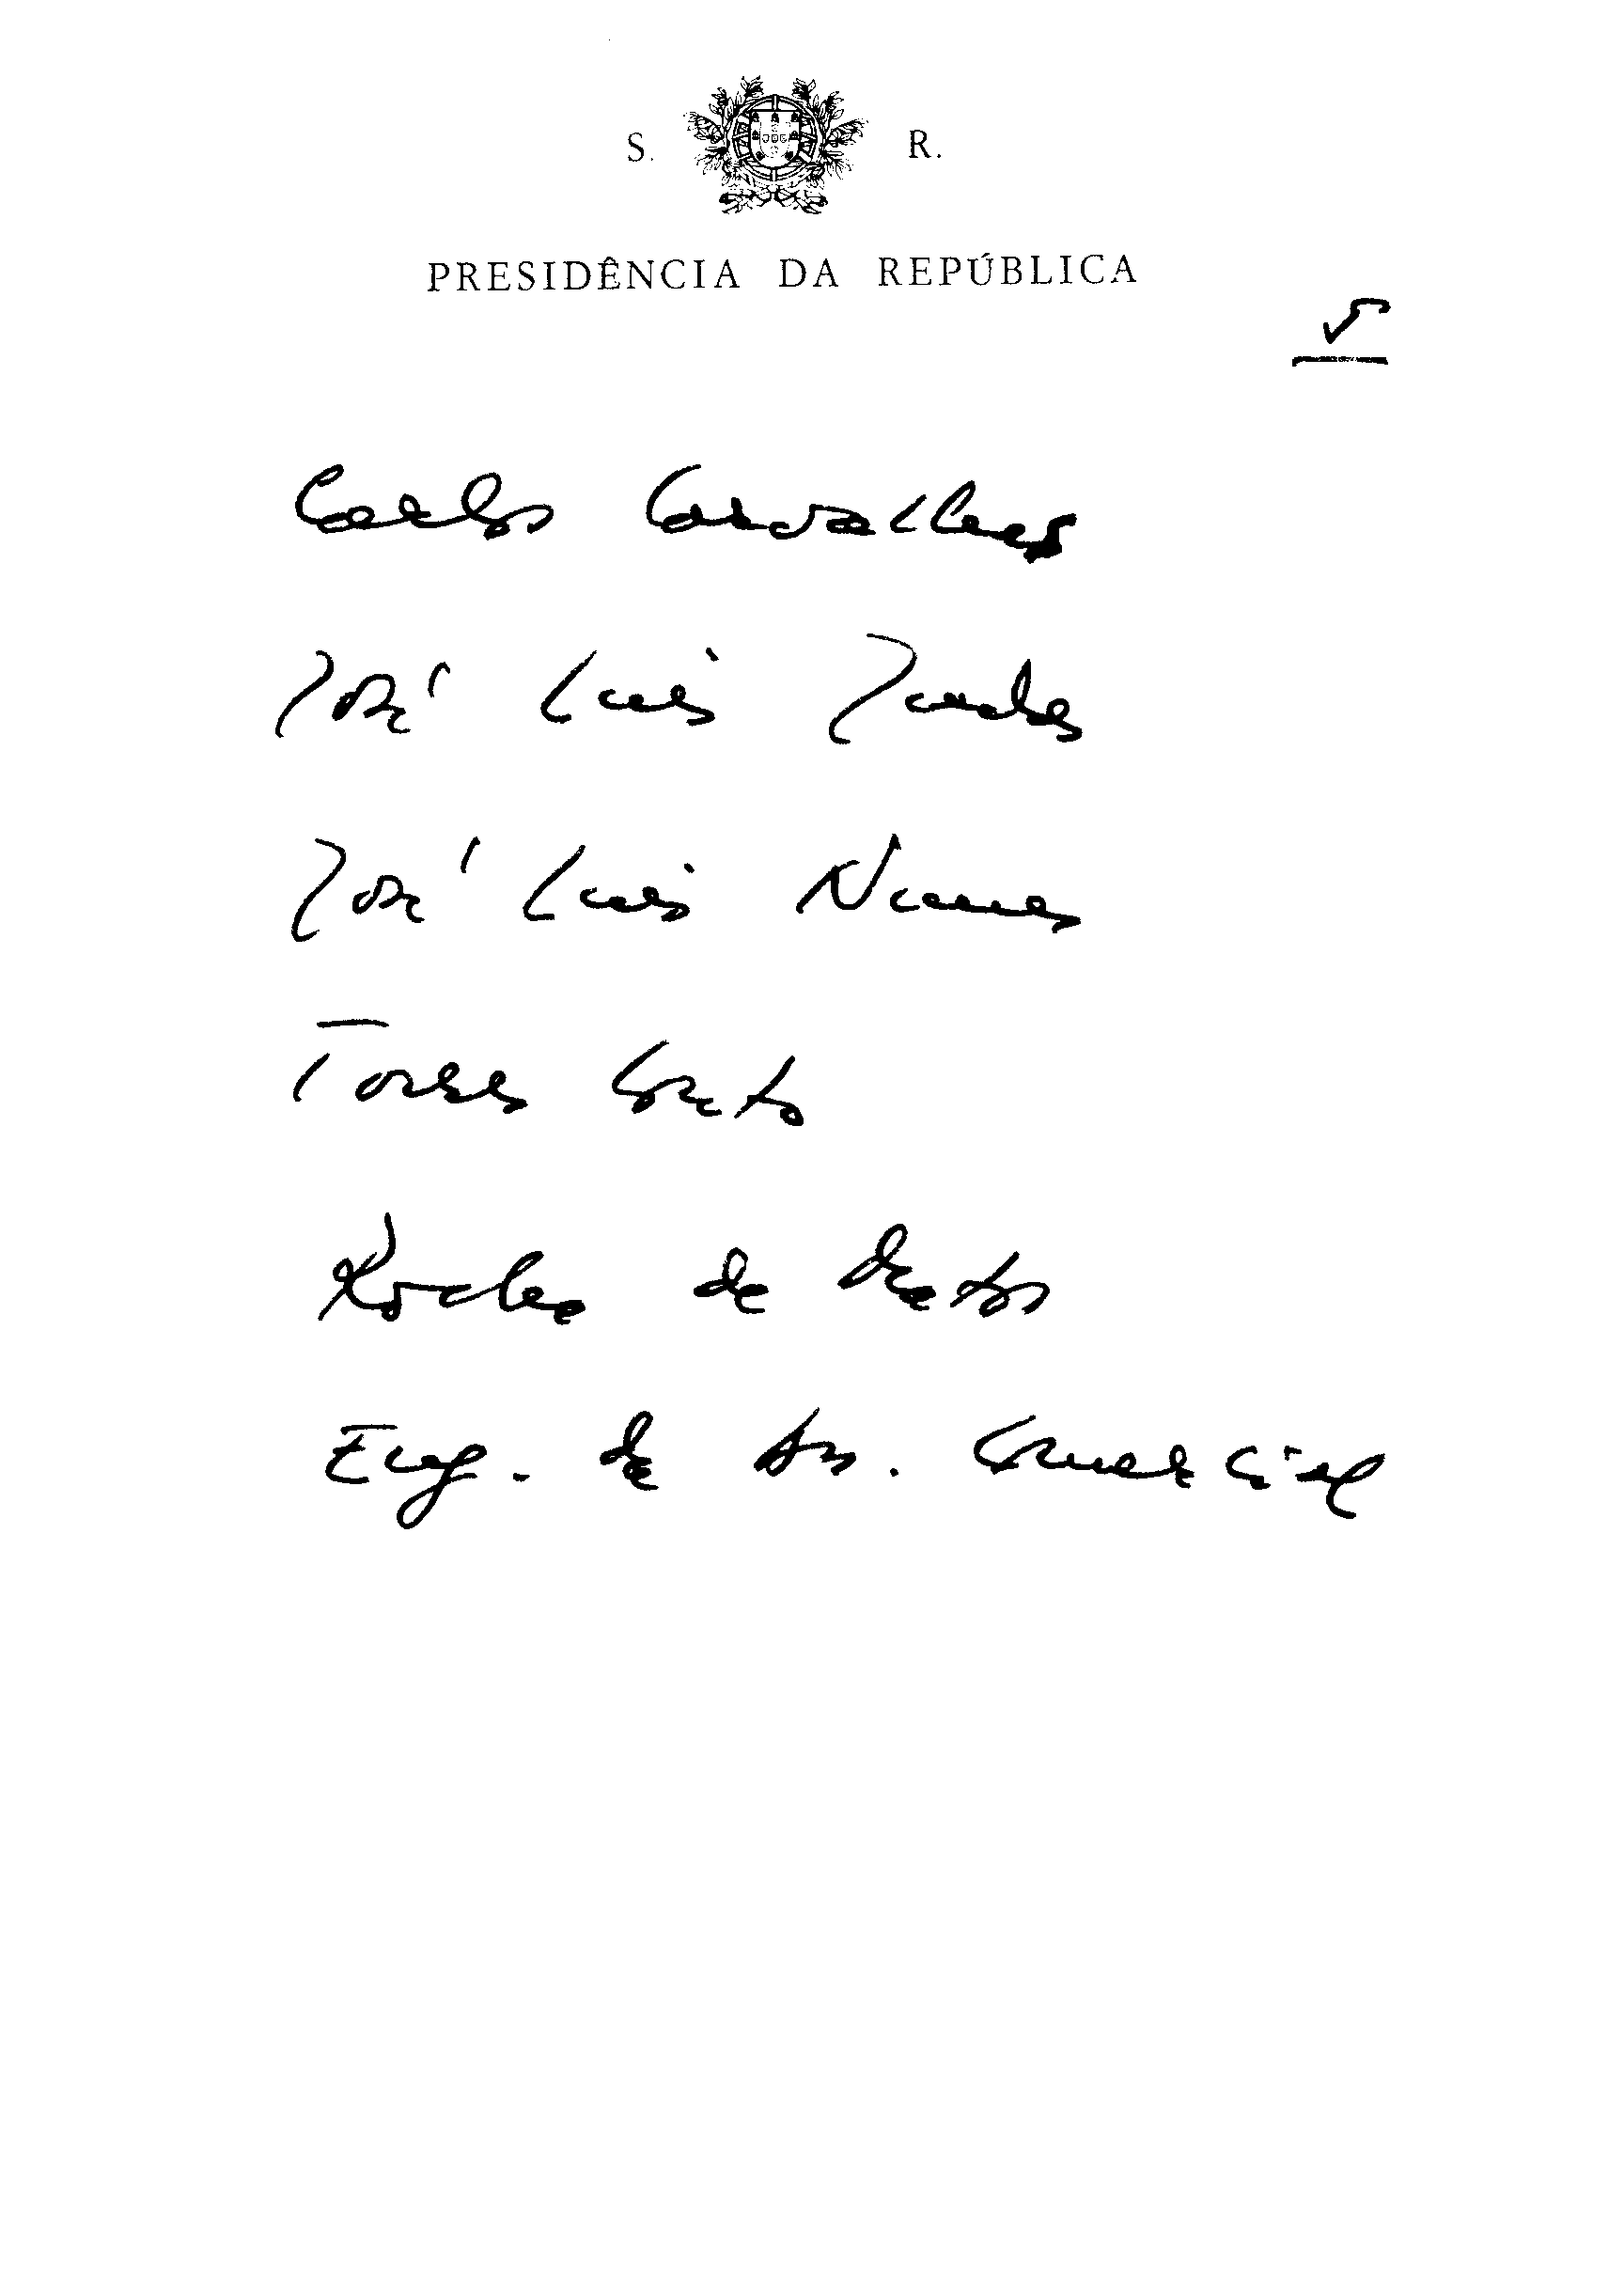 S. R.
PRESIDÊNCIA DA REPÚBLICA
5
Carlos Carvalhas
José Luís
José Luís Nunes
Torres Couto
Rocha de Matos
Eng. de Ass. Comercial